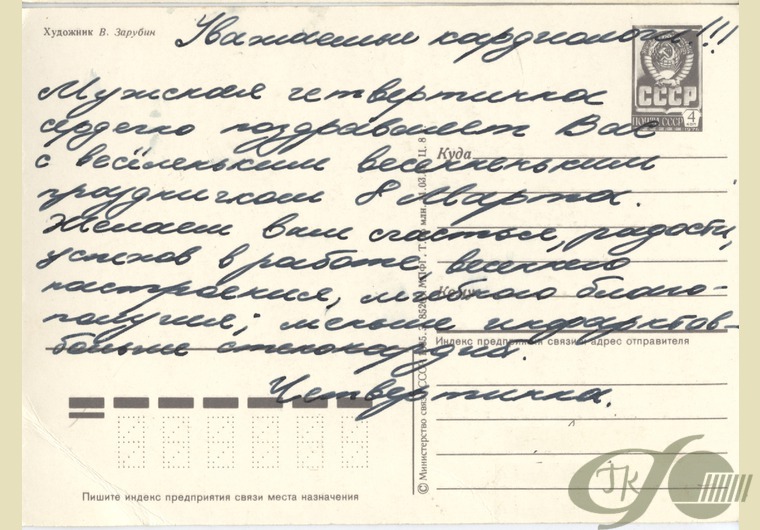 Художник В. Зарубин
Уважаемые кардиологи!!!
СССР
ПОЧТА СССР 4
Мужская четвертинка
сердечно поздравляет Вас
с весёленьким весенненьким
праздничком 8 Марта.
Куда
Желаем вам счастья, радости,
успехов в работе весеннего
настроения, личного благо-
Кому
получия; меньше инфарктов-
больше стенокардий.
Индекс предприятия связи и адрес отправителя
Четвертинка.
© Министерство связи СССР
Пишите индекс предприятия связи места назначения
ГК